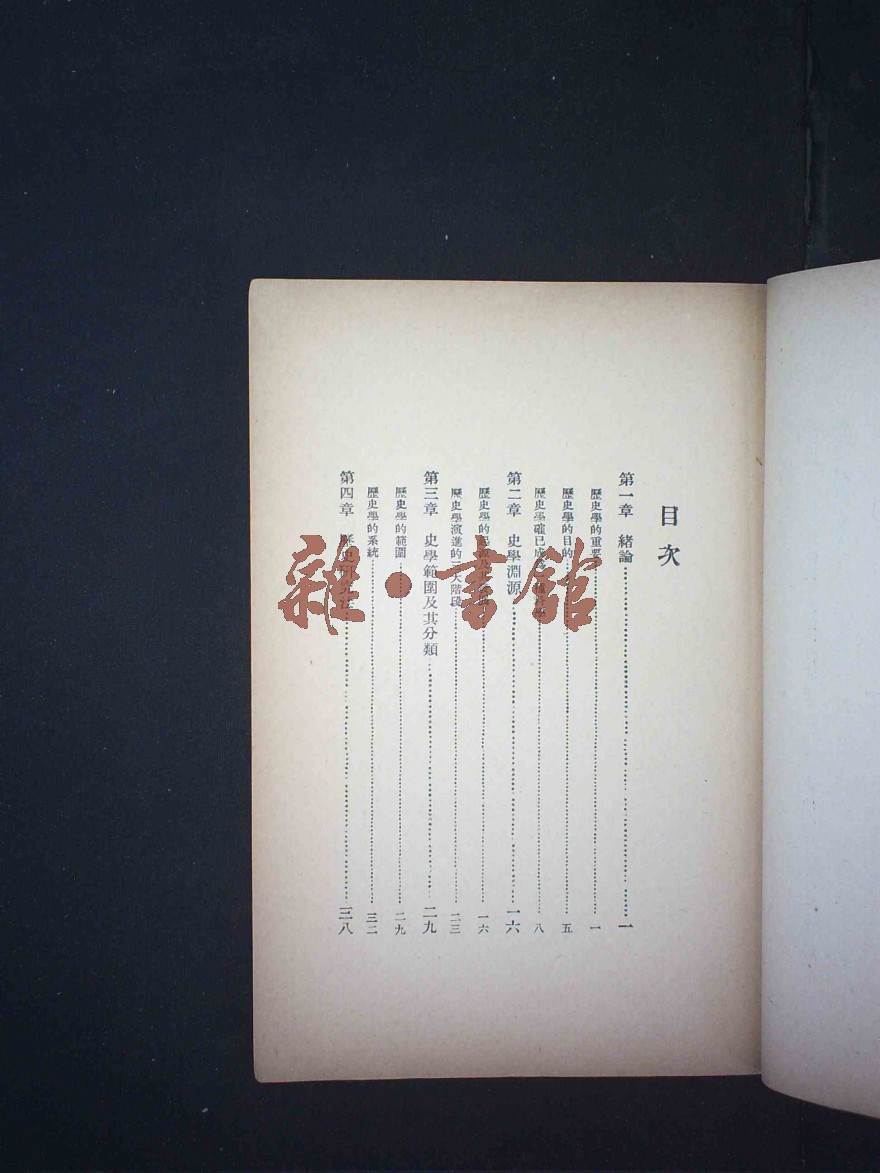 目次
第一章　緒論…………一
歷史學的重要…………一
歷史學的目的…………五
歷史學確已成…………八
第二章　史學淵源…………一六
歷史學的…………一六
歷史學演進的三大階段…………二三
第三章　史學範圍及其分類…………二九
歷史學的範圍…………二九
歷史學的系統…………三二
第四章　歷史研究法…………三八
雜·書館